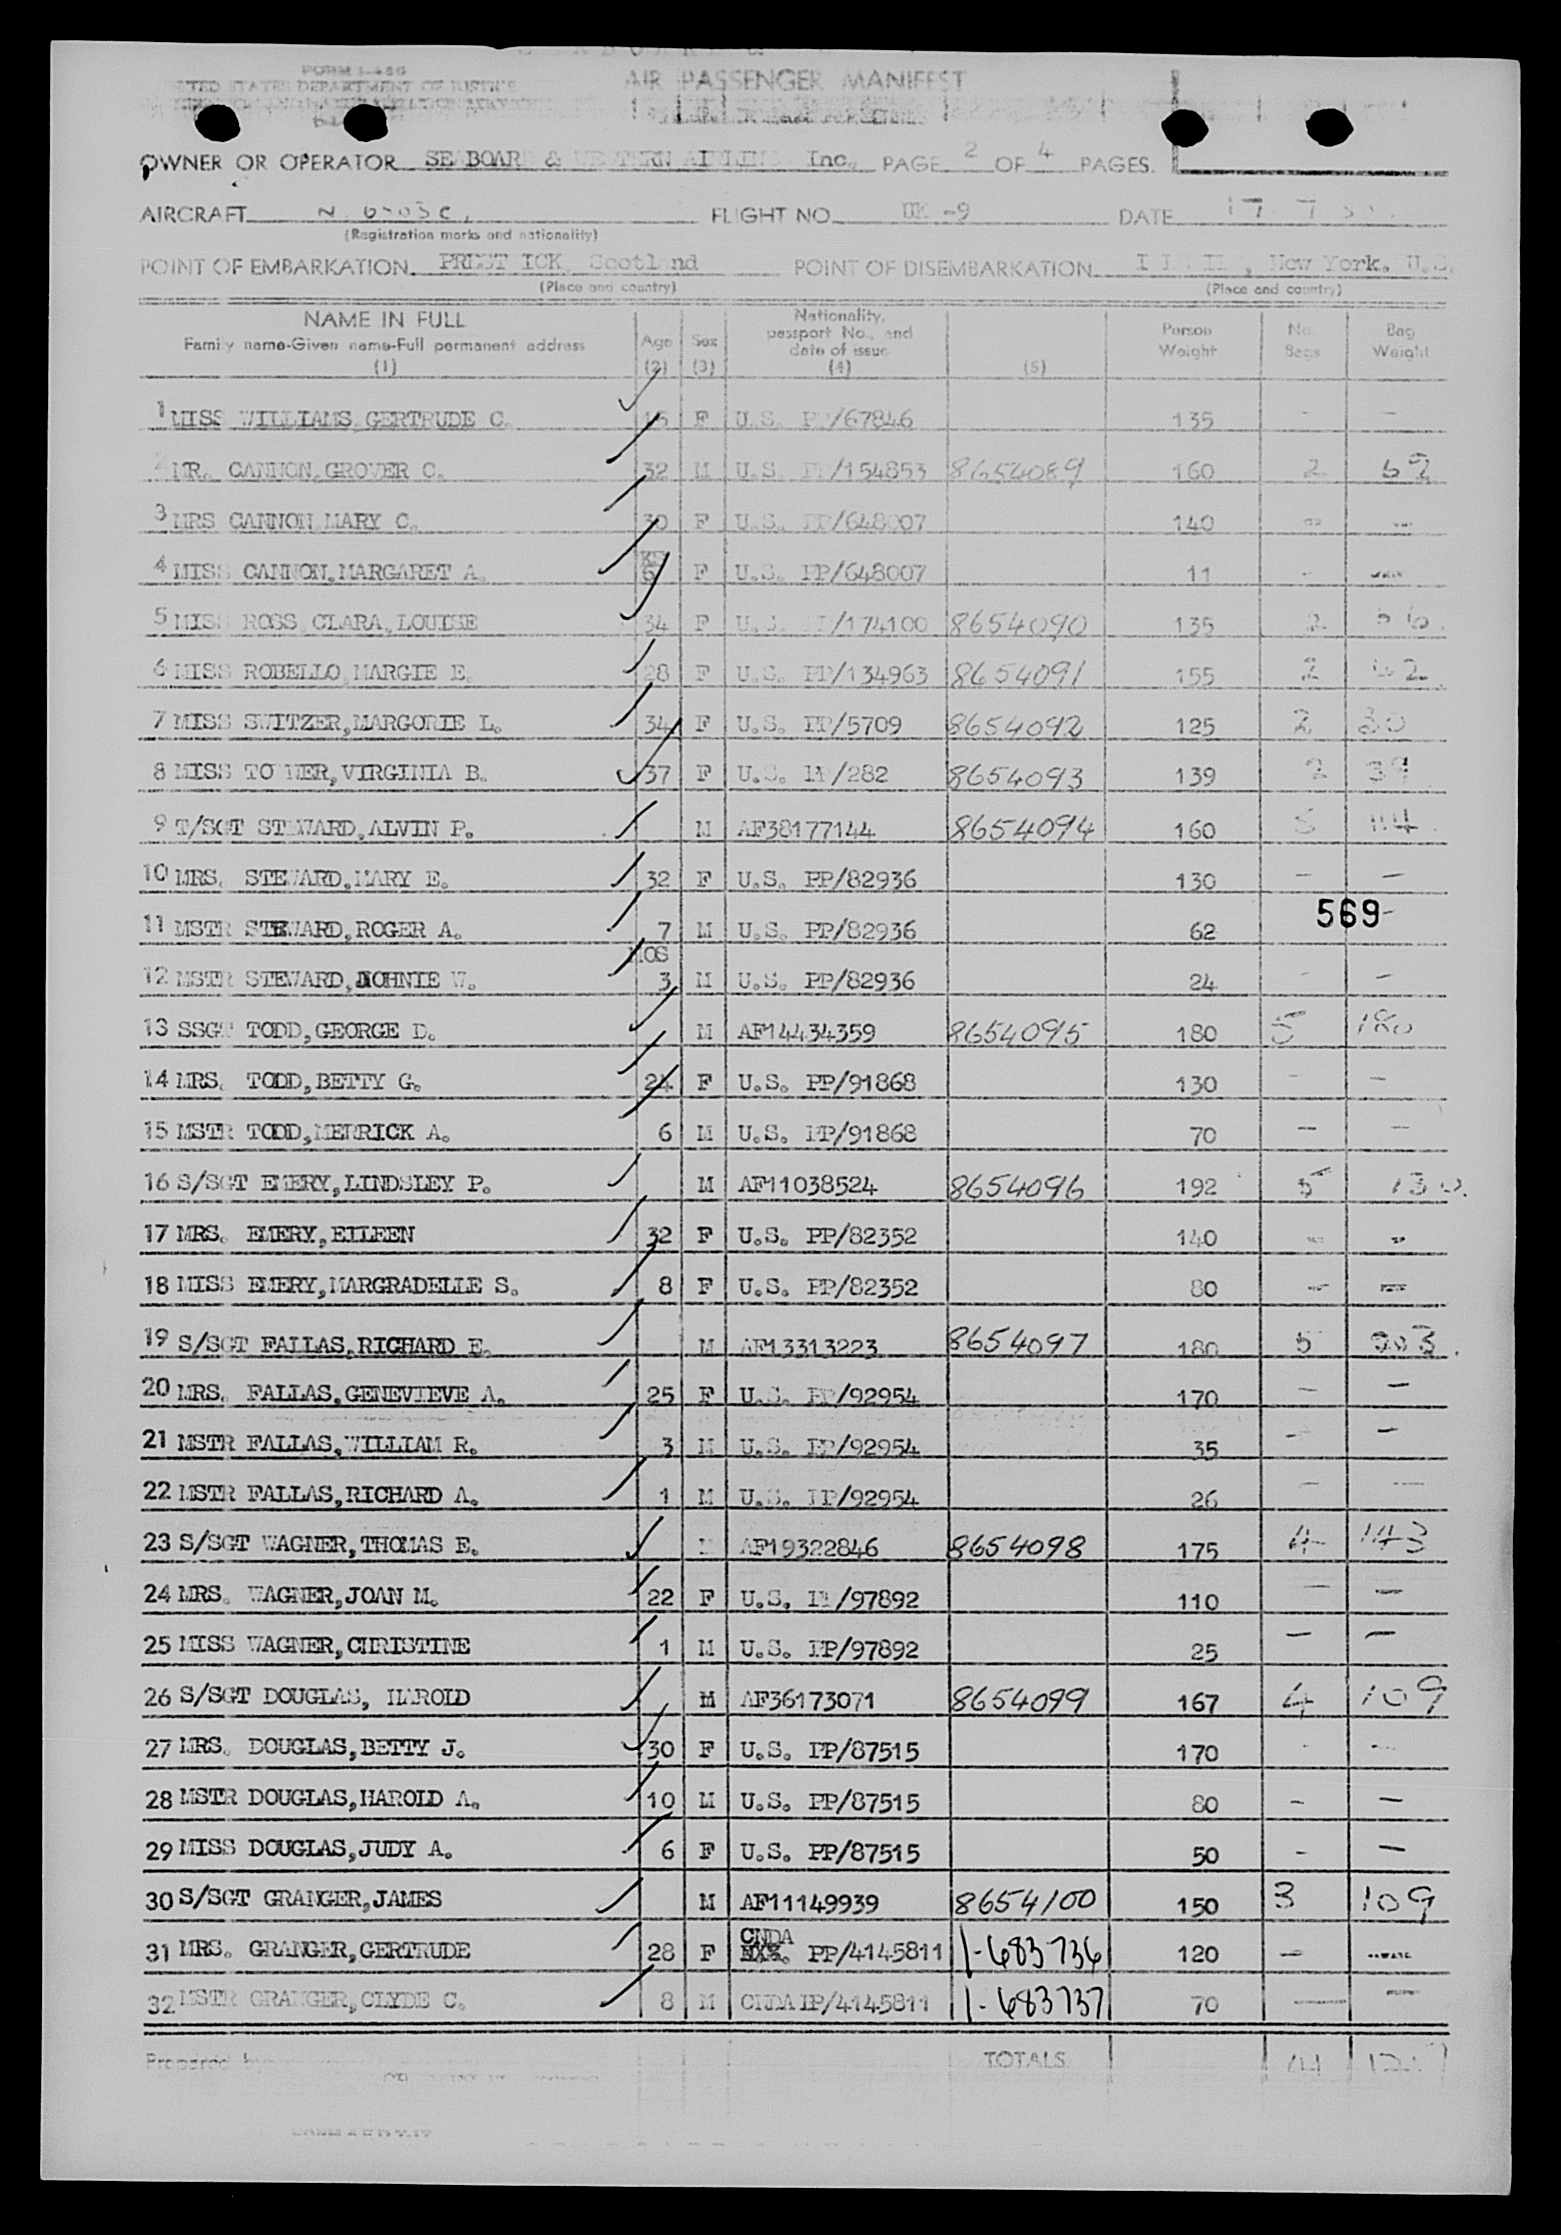 FORM I-466
UNITED STATES DEPARTMENT OF JUSTICE
AIR PASSENGER MANIFEST
OWNER OR OPERATOR SEABOARD & WESTERN AIRLINES Inc. PAGE 2 OF 4 PAGES.
AIRCRAFT N FLIGHT NO. UK -9 DATE 17 7
(Registration marks and nationality)
POINT OF EMBARKATION PRESTWICK, Scotland POINT OF DISEMBARKATION New York, U.S.
(Place and country) (Place and country)
NAME IN FULL Family name-Given name-Full permanent address (1) Age (2) Sex (3) Nationality, passport No., and date of issue (4) (5) Person Weight No. Bags Bag Weight
1 MISS WILLIAMS GERTRUDE C. F U.S. PP/67846 135 - -
2 MR. CANNON,GROVER C. 32 M U.S. PP/154853 8654089 160 2
3 MRS CANNON MARY C. 30 F U.S. PP/648007 140 - -
4 MISS CANNON,MARGARET A. 6 F U.S. PP/648007 11 - -
5 MISS ROSS CLARA,LOUISE 34 F U.S. PP/174100 8654090 135 2 56
6 MISS ROBELLO MARGIE E. 28 F U.S. PP/134963 8654091 155 2
7 MISS SWITZER,MARGORIE L. 34 F U.S. PP/5709 8654092 125 2 30
8 MISS TOWNER,VIRGINIA B. 37 F U.S. PP/282 8654093 139 2 39
9 T/SGT STEWARD,ALVIN P. M AF38177144 8654094 160 5 114
10 MRS. STEWARD,MARY E. 32 F U.S. PP/82936 130 - -
11 MSTR STEWARD,ROGER A. 7 M U.S. PP/82936 62 569 -
12 MSTR STEWARD,JOHNIE W. MOS 3 M U.S. PP/82936 24 - -
13 SSGT TODD,GEORGE D. M AF14434359 8654095 180 5 180
14 MRS. TODD,BETTY G. 24 F U.S. PP/91868 130 - -
15 MSTR TODD,MERRICK A. 6 M U.S. PP/91868 70 - -
16 S/SGT EMERY,LINDSLEY P. M AF11038524 8654096 192 5 130
17 MRS. EMERY,EILEEN 32 F U.S. PP/82352 140 - -
18 MISS EMERY,MARGRADELLE S. 8 F U.S. PP/82352 80 - -
19 S/SGT FALLAS,RICHARD E. M AF13313223 8654097 180 5 203
20 MRS. FALLAS,GENEVIEVE A. 25 F U.S. PP/92954 170 - -
21 MSTR FALLAS,WILLIAM R. 3 M U.S. PP/92954 35 - -
22 MSTR FALLAS,RICHARD A. 1 M U.S. PP/92954 26 - -
23 S/SGT WAGNER,THOMAS E. M AF19322846 8654098 175 4 143
24 MRS. WAGNER,JOAN M. 22 F U.S. PP/97892 110 - -
25 MISS WAGNER,CHRISTINE 1 M U.S. PP/97892 25 - -
26 S/SGT DOUGLAS, HAROLD M AF36173071 8654099 167 4 109
27 MRS. DOUGLAS,BETTY J. 30 F U.S. PP/87515 170 - -
28 MSTR DOUGLAS,HAROLD A. 10 M U.S. PP/87515 80 - -
29 MISS DOUGLAS,JUDY A. 6 F U.S. PP/87515 50 - -
30 S/SGT GRANGER,JAMES M AF11149939 8654100 150 3 109
31 MRS. GRANGER,GERTRUDE 28 F CNDA PP/4145811 1-683736 120 - -
32 MSTR GRANGER,CLYDE C. 8 M CNDA PP/4145811 1-683737 70 - -
Prepared by TOTALS